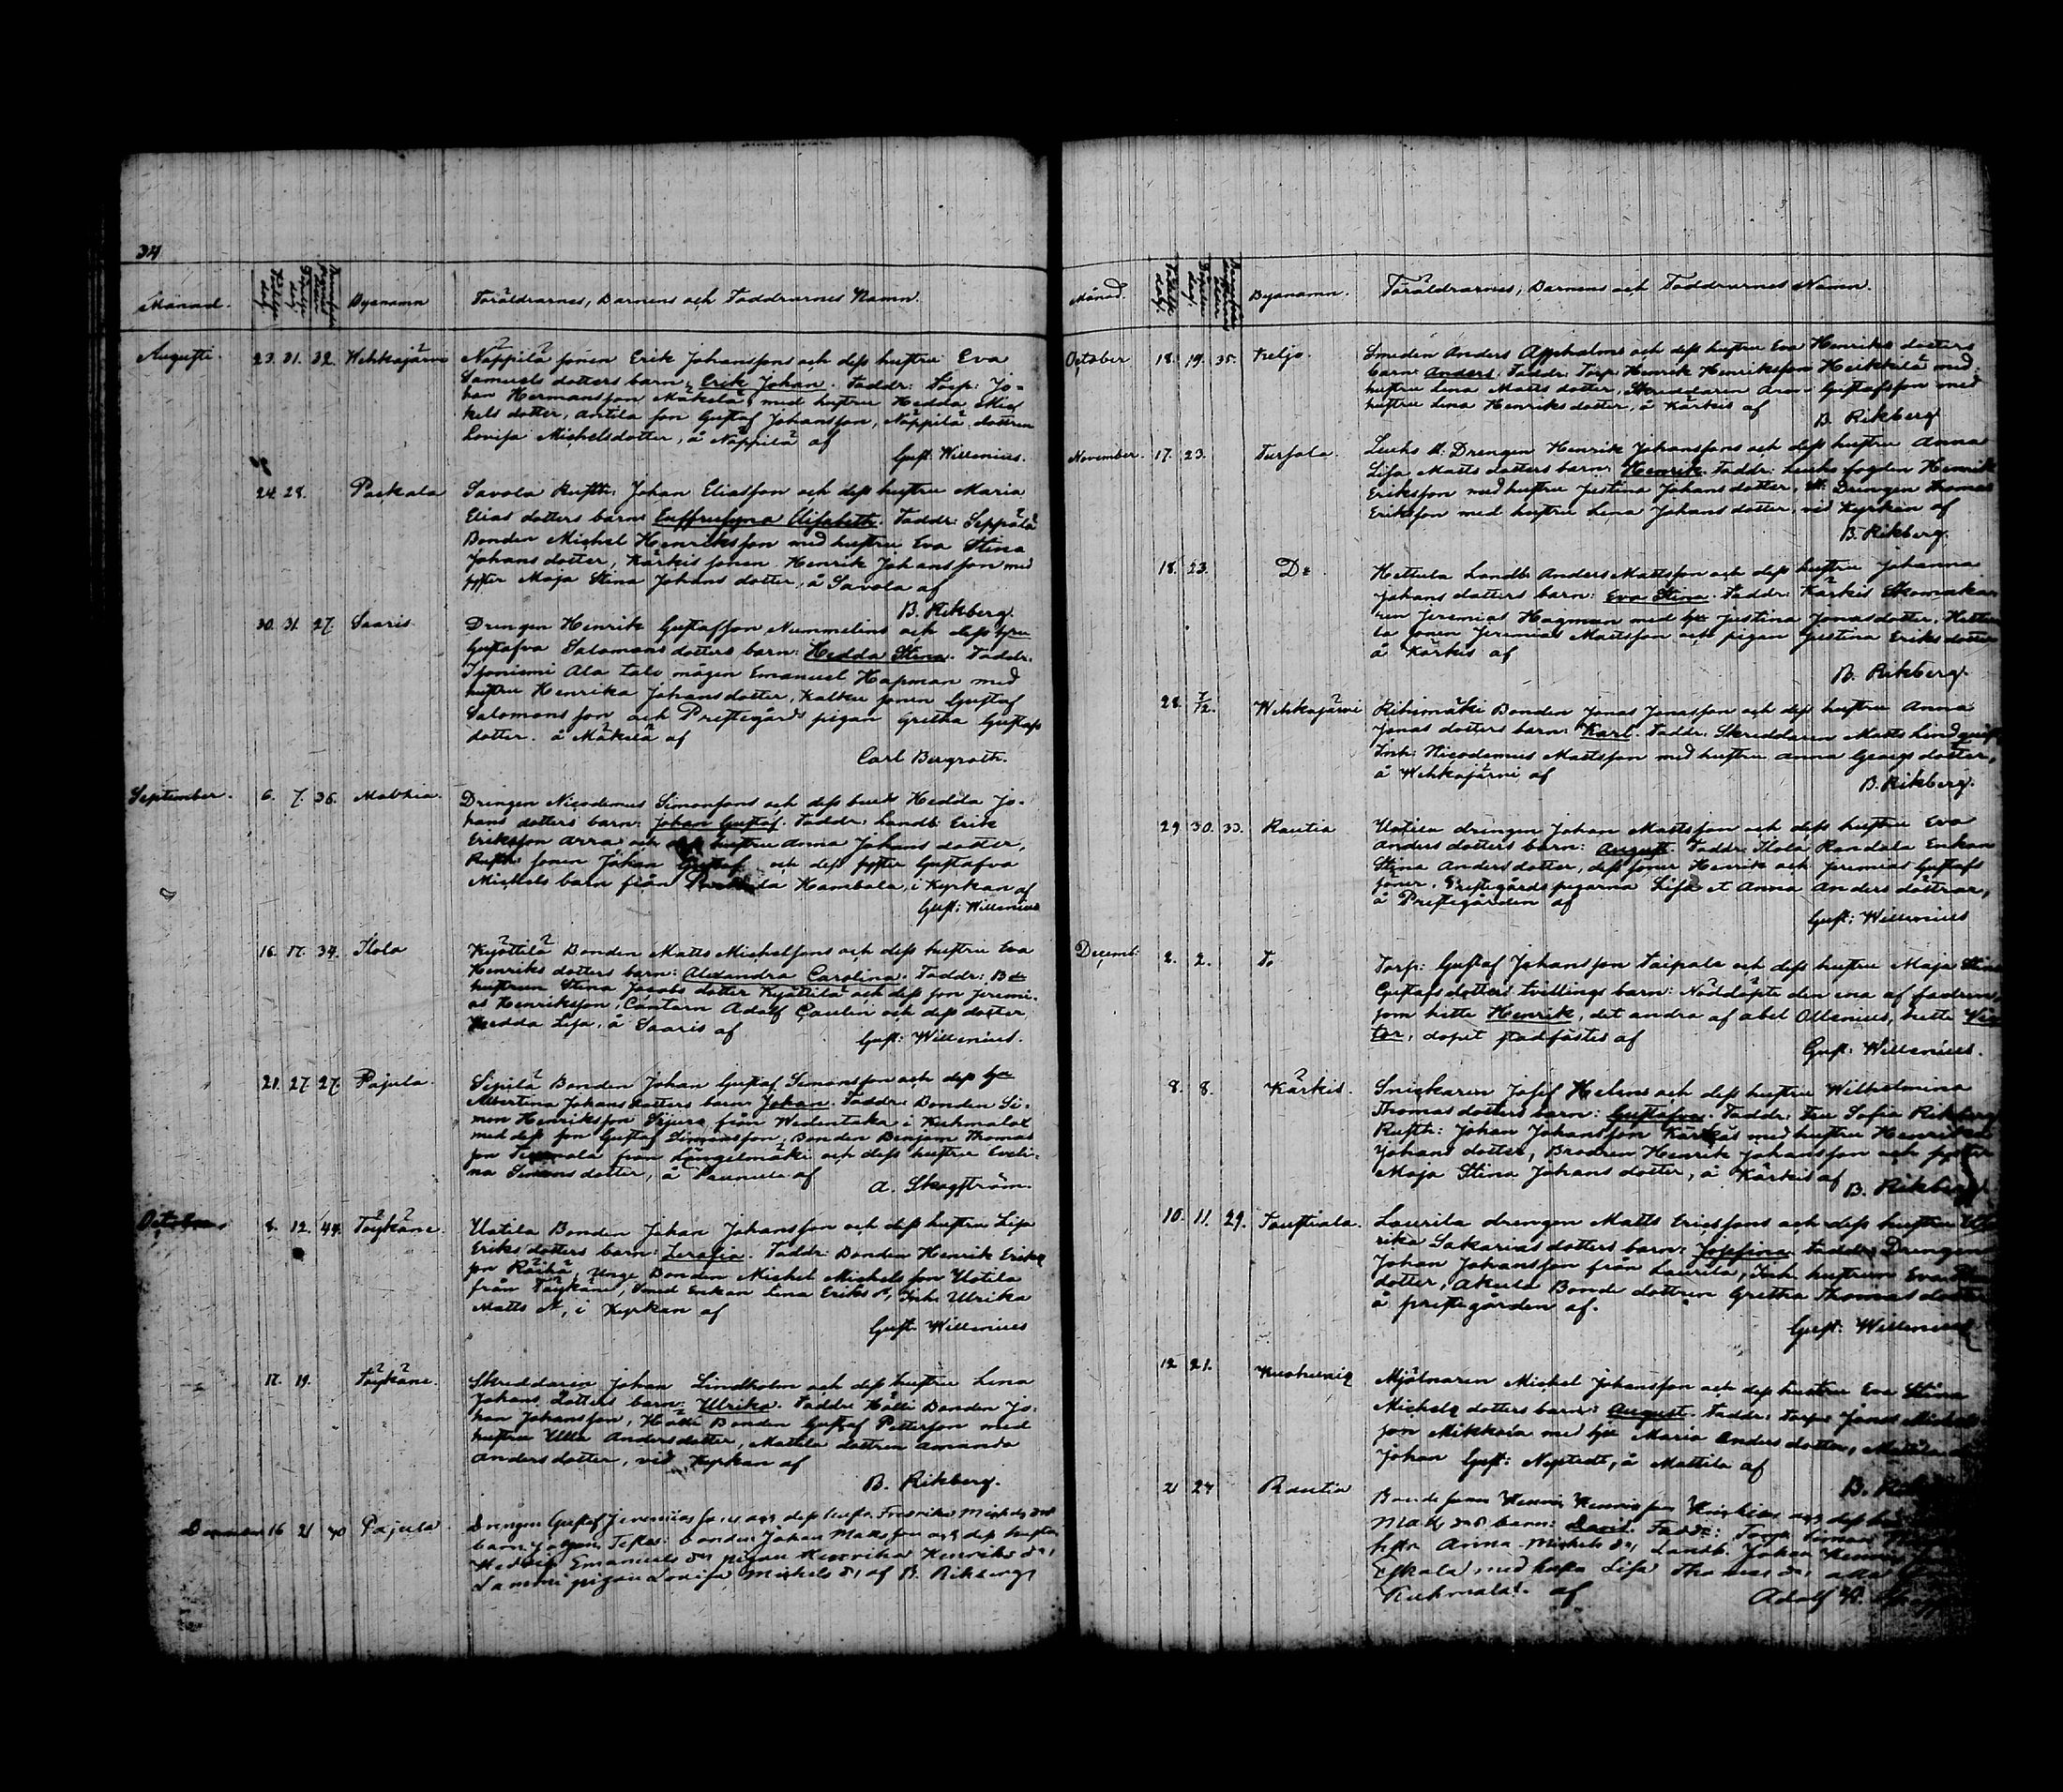 34
Månad. Födelse dag. Döpelse dag. Byanamn Föräldrarnes, Barnens och Faddrarnes Namn.
Augusti. 23. 31. 32. Wehkajärvi Näppilä sonen Erik Johanssons och dess hustru Eva
Samuels dotters barn, Erik Johan. Faddr: Torp: Jo-
han Hermansson Mäkelä, med hustru Hedda Mic
kels dotter, Antila son Gustaf Johansson, Näppilä dottren
Lovisa Michelsdotter, å Näppilä af
Gust. Willenius.
24. 28. Packala Savola Rusth: Johan Eliasson och dess hustru Maria
Elias dotters barn: Euffrusyna Elisabeth. Faddr: Seppälä
Bonden Michel Henriksson med hustru Eva Stina
Johans dotter, Kärkis sonen Henrik Johansson med
syster Maja Stina Johans dotter, å Savola af
B. Rikberg.
30. 31. 27. Saaris. Drengen Henrik Gustafsson Nummelins och dess hru
Gustafva Salomons dotters barn: Hedda Stina. Faddr.
Ala talo mågen Emanuel Hapman med
hustru Henrika Johansdotter, Kalku sonen Gustaf
Salomonsson och Prestegårds pigan Gretha Gustafs
dotter. å Mäkelä af
Carl Bergroth.
September. 6. 7. 36. Mälkia. Drengen Nicodemus Simonssons och dess hustr Hedda Jo-
hans dotters barn: Johan Gustaf. Faddr: Landb: Erik
Eriksson Arra och hustru Anna Johans dotter,
Rusth: sonen Johan Gustaf och dess syster Gustafva
Michels barn från Hambala, i Kyrkan af
Gust: Willenius
16. 17. 34. Ilola Kyöttilä Bonden Matts Michelssons och dess hustru Eva
Henriks dotters barn: Alexandra Carolina. Faddr: Bde
hustrun Stina Jacobs dotter Kyöttilä och dess son Jeremi-
as Henriksson, Cantorn Adolf Paulin och dess dotter
Hedda Lisa, å Saaris af
Gust: Willenius.
21. 27. 27. Pajula. Sipilä Bonden Johan Gustaf Simonsson och dess hru
Albertina Johans dotters barn: Johan. Faddr: Bonden Si-
mon Henriksson från Wedentaka i Kuhmalax
med dess son Gustaf Simonsson, Bonden Benjam Thomas
son från Längelmäki och dess hustru Eveli-
na Simons dotter, å af
A. Skogström.
October 8. 12. 44. Töykäne. Uotila Bonden Johan Johansson och dess hustru Lisa
Eriks dotters barn: Serafia. Faddr: Bonden Henrik Eriks
son Räihä, Unge Bonden Michel Michelsson Uotila
från Töykäne, Smed Enkan Lena Eriks dr, Inh: Ulrika
Matts dr, i Kyrkan af
Gust. Willenius
17. 19. Töykäne. Skreddaren Johan Lindholm och dess hustru Lena
Johans dotters barn: Ulrika. Faddr: Hölli Bonden Jo-
han Johansson, Bonden Gustaf Petterson med
hustru Ulla Andersdotter, Mattila dottren Amanda
Andersdotter, vid Kyrkan af
B. Rikberg.
16 21 40 Pajula. Drengen Gustaf Jeremiasson och dess hustru Fredrika Michels dr
barn: Johan, Testes: bonden Johan Mattsson och dess hustru
Hedvig Emanuels dr, pigan Henrika Henriks dr,
pigan Lovisa Michels dr, af B. Rikberg
Månad. Födelse dag. Döpelse dag. Byanamn. Föräldrarnes, Barnens och Faddrarnes Namn.
October 18. 19. 35. Keljo. Smeden Anders Appholms och dess hustru Eva Henriks dotters
barn: Anders. Faddr: Torp: Henrik Henriksson Heikkilä med
hustru Lena Matts dotter, Skreddaren Aron Gustafsson med
hustru Lena Henriksdotter, å Kärkis af
B. Rikberg
November. 17. 23. Tursola. Lucks St: Drengen Henrik Johanssons och dess hustru Anna
Lisa Matts dotters barn: Henrik. Faddr: Lucks fogden Henrik
Eriksson med hustru Justina Johans dotter, St: Drengen Thomas
Eriksson med hustru Lena Johans dotter, vid Kyrkan af
B. Rikberg.
18. 23. Do Hettula Landb: Anders Mattsson och dess hustru Johanna
Johans dotters barn: Eva Stina. Faddr: Kärkis Skomaka-
ren Jeremias Hagman med hru Justina Jonasdotter, Hettu-
la sonen Jeremias Mattsson och pigan Justina Eriks dotter
å Kärkis af
B. Rikberg.
28. 7/12. Wehkajärvi Rihimäki Bonden Jonas Jonasson och dess hustru Anna
Jonas dotters barn: Karl. Faddr: Skreddaren Matts Lindqvist
Inh: Nicodemus Mattsson med hustru Anna Georgs dotter,
å Wehkajärvi af
B. Rikberg.
29. 30. 33. Rautia Uotila drengen Johan Mattsson och dess hustru Eva
Anders dotters barn: August. Faddr: Ilola Randala Enkan
Stina Anders dotter, dess söner Henrik och Jeremias Gustafs
söner. Prestegårds pigorna Lisa et Anna Anders döttrar,
å Prestegården af
Gust: Willenius
Decemb: 2. 2. Torp: Gustaf Johansson Taipale och dess hustru Maja Stina
Gustafs dotters tvillings barn: Nöddöpte den ena af fadren,
som hette Henrik, det andra af Abel Ollenius, hette Vic
tor, dopet stadfästes af
Gust: Willenius.
8. 8. Kärkis. Snickaren Josef Helms och dess hustru Wilhelmina
Thomas dotters barn: Gustafva. Faddr: Fru Sofia Rikberg
Rusth: Johan Johansson Kärkis med hustru Henrika
Johans dotter, Brodren Henrik Johansson och syster
Maja Stina Johans dotter, å Kärkis af B. Rikberg
10. 11. 29. Taustiala. Laurila drengen Matts Ericssons och dess hustru Ul
rika Sakarias dotters barn: Josefina. Faddr: Drengen
Johan Johansson från Laurila, Inh: hustrun Eva
dotter, Akula Bonde dottren Gretha Thomas dotter
å prestegården af.
Gust: Willenius
12 21. Mjölnaren Michel Johansson och dess hustru Eva Stina
Michels dotters barn: August. Faddr: Torp: Jonas Michels
son Mikkola med hru Maria Anders dotter, Mattila
Johan Gust: Nystedt, å Mattila af
21 24 Rautia Bonde sonen Henric Henricsson och dess
Matts drs barn: David. Fadd:
Anna Michels dr, Landb. Johan
Eskola med hustru Lisa Thomas dr,
Kuhmalax. af Adolf